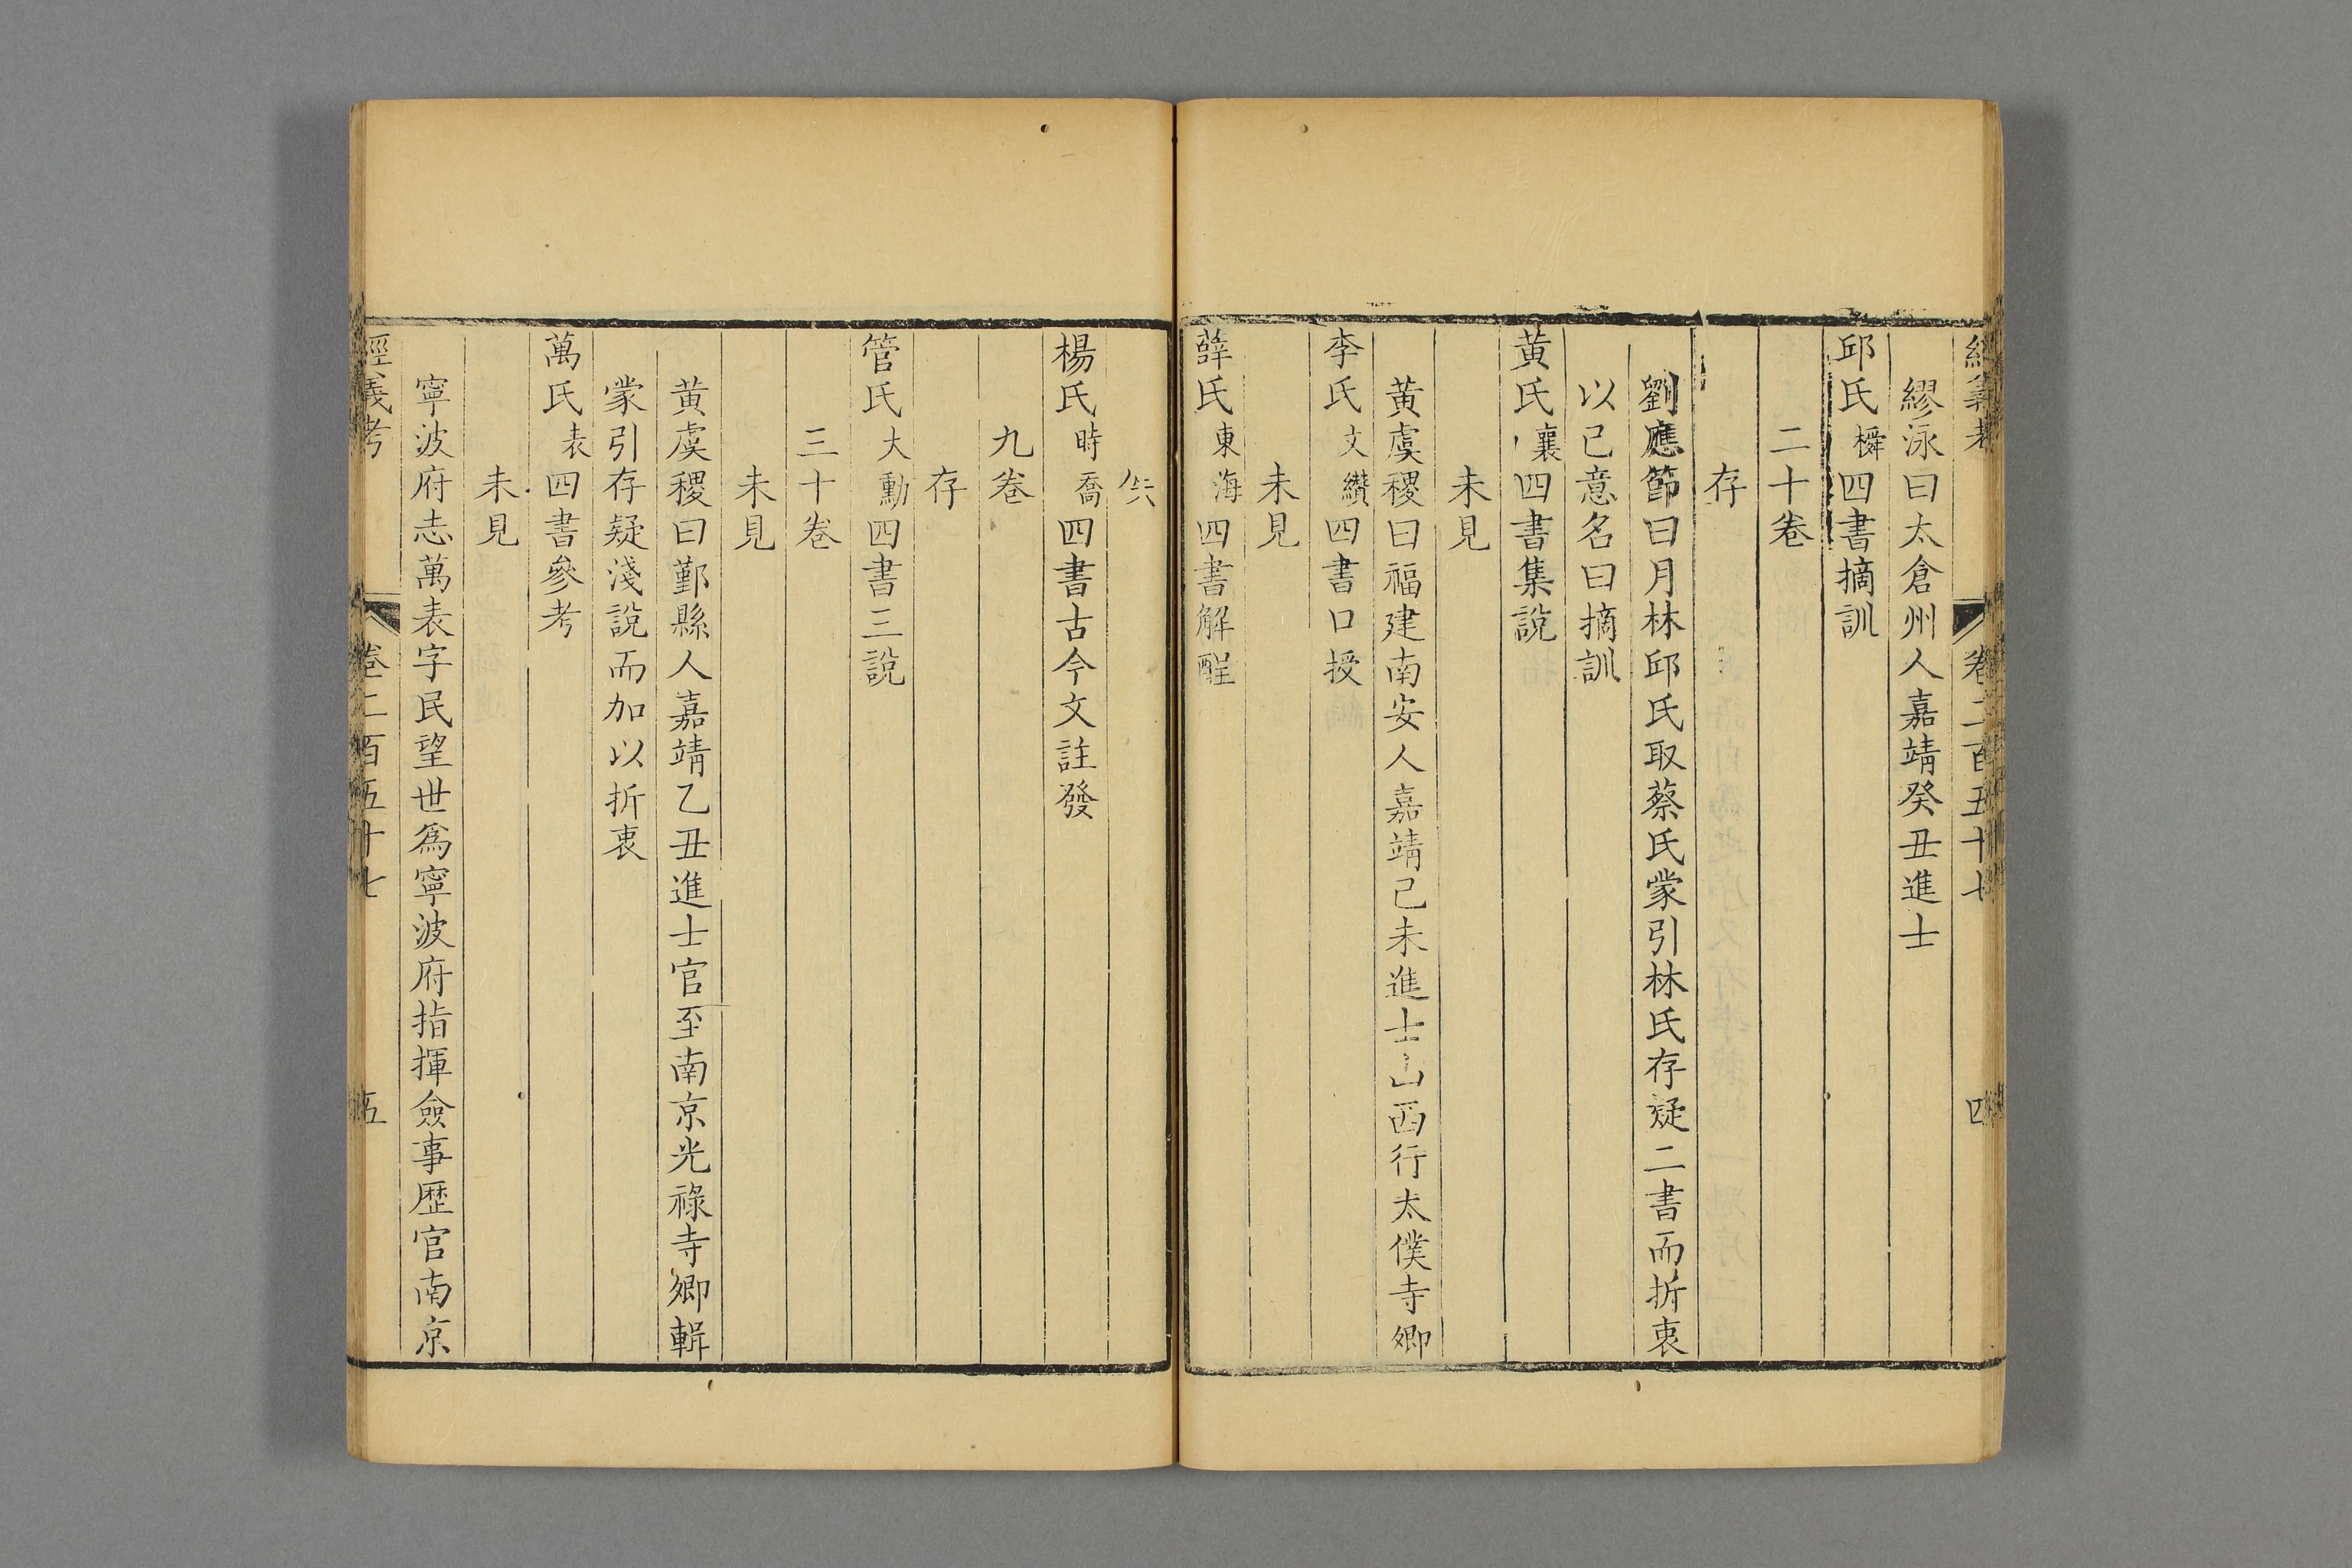 經義考 卷二百五十七 四
繆泳曰太倉州人嘉靖癸丑進士
邱氏橓四書摘訓
二十卷
存
劉應節曰月林邱氏取蔡氏蒙引林氏存疑二書而折衷
以己意名曰摘訓
黄氏襄四書集說
未見
黄虞稷曰福建南安人嘉靖己未進士山西行太僕寺卿
李氏文纘四書口授
未見
薛氏東海四書解醒
佚
楊氏時喬四書古今文註發
九卷
存
管氏大勳四書三說
三十卷
未見
黄虞稷曰鄞縣人嘉靖乙丑進士官至南京光祿寺卿輯
蒙引存疑淺說而加以折衷
萬氏表四書參考
未見
寧波府志萬表字民望世爲寧波府指揮僉事歷官南京
經義考 卷二百五十七 五